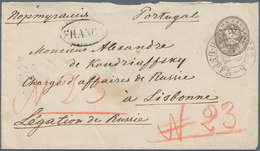 Португалiя Portugal
FRANCO
Monsieur Alexandre
de Koudriaffsky
Chargé d'affaires de Russie
à Lisbonne
Légation de Russie
№ 23